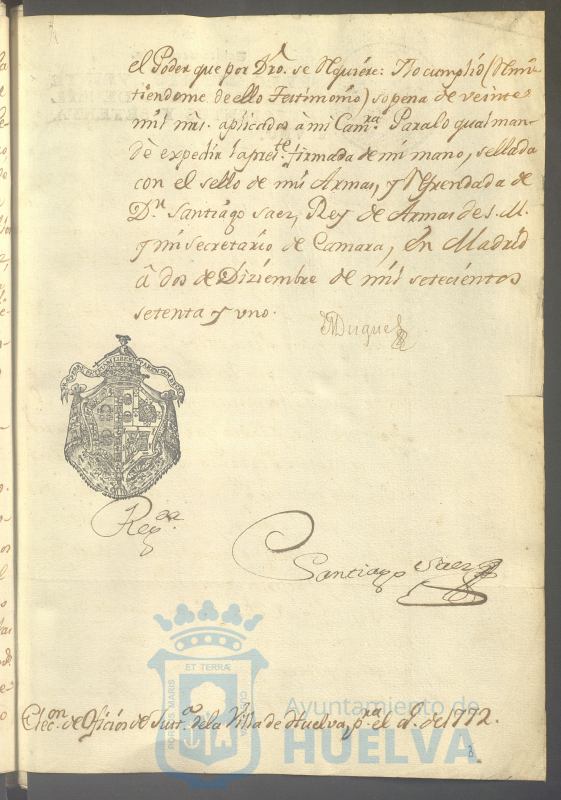 el Poder que por Dro. se requiere: Y lo cumplid (Remi-
tiendome de ello Testimonio) so pena de veinte
mil mrs. aplicados à mi Camra. Para lo qual man-
dè expedir la preste. firmada de mi mano, sellada
con el sello de mis Armas, y refrendada de
Dn. Santiago Saez, Rey de Armas de S. M.
y mi secretario de Camara, En Madrid
à dos de Diziembre de mil setecientos
setenta y uno.
el Duque
Regda.
Santiago Saez
Elecon. de Oficios de Justa. de la Villa de Huelva, pra. el a. de 1772.
ET TERRÆ
PORTUS MARIS
CUSTODIA
Ayuntamiento de
HUELVA
8